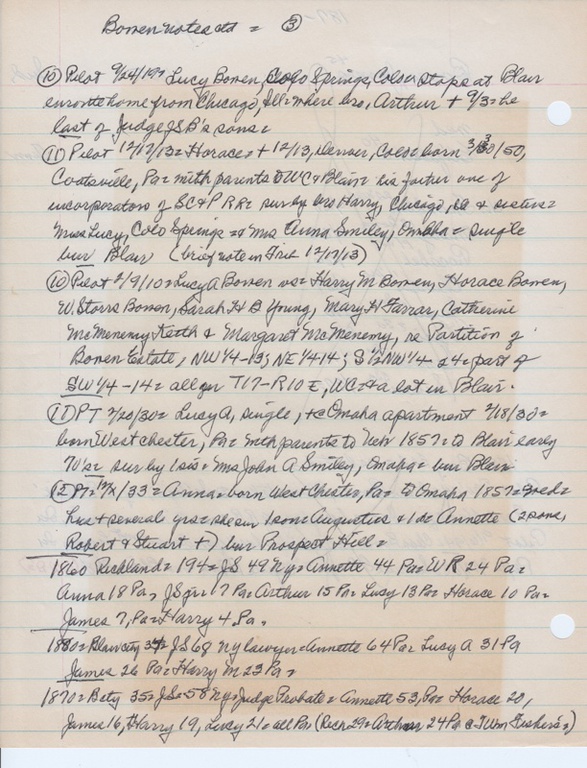 Bowen notes ctd = ③
⑩ Pilot 9/24/19= Lucy Bowen, Colo Springs, Colo= stops at Blair
enroute home from Chicago, Ill= where bro, Arthur + 9/3= he
last of Judge JSB's sons=
⑪ Pilot 12/17/13= Horace= + 12/13, Denver, Colo= born 3/30/50,
Coatsville, Pa= with parents to WC & Blair= his father one of
incorporators of SC&P RR= sur by bro Harry, Chicago, & sisters=
Miss Lucy, Colo Springs = Mrs Anna Smiley, Omaha = single
bur Blair (brief note in Trib 12/17/13)
⑩ Pilot 2/9/10= Lucy A Bowen vs= Harry M Bowen, Horace Bowen,
W. Storrs Bowen, Sarah H B Young, Mary H Farrar, Catherine
McMenemy Keith & Margaret McMenemy, re Partition of
Bowen Estate, NW 1/4-13; NE 1/4 14; S 1/2 NW 1/4 & part of
SW 1/4 -14= all in T17-R10 E, WC= & a lot in Blair.
⑪ PT 2/20/30= Lucy A, single, + Omaha apartment 2/18/30=
born West chester, Pa= with parents to Neb 1857= to Blair early
70's= sur by 1 sis= Mrs John A Smiley, Omaha= bur Blair
⑫ PT= /33= Anna= born West Chester, Pa= to Omaha 1857=
hus + several yrs= she sur 1 son= Augustus & 1 d= Annette (2 sons,
Robert & Stuart +) bur Prospect Hill=
1860 Richland= 194= JS 49 Ny= Annette 44 Pa= W R 24 Pa=
Anna 18 Pa, JS jr= 17 Pa= Arthur 15 Pa= Lucy 13 Pa= Horace 10 Pa=
James 7, Pa= Harry 4, Pa.
1880= Blair city JS 68 Ny lawyer= Annette 64 Pa= Lucy A 31 Pa
James 26 Pa= Harry M 23 Pa=
1870= Bcty 35= JS= 58 Ny= Judge Probate= Annette 53, Pa= Horace 20,
James 16, Harry 19, Lucy 21= all Pa (Rich 29= Arthur 24 Pa @ Fishers=)